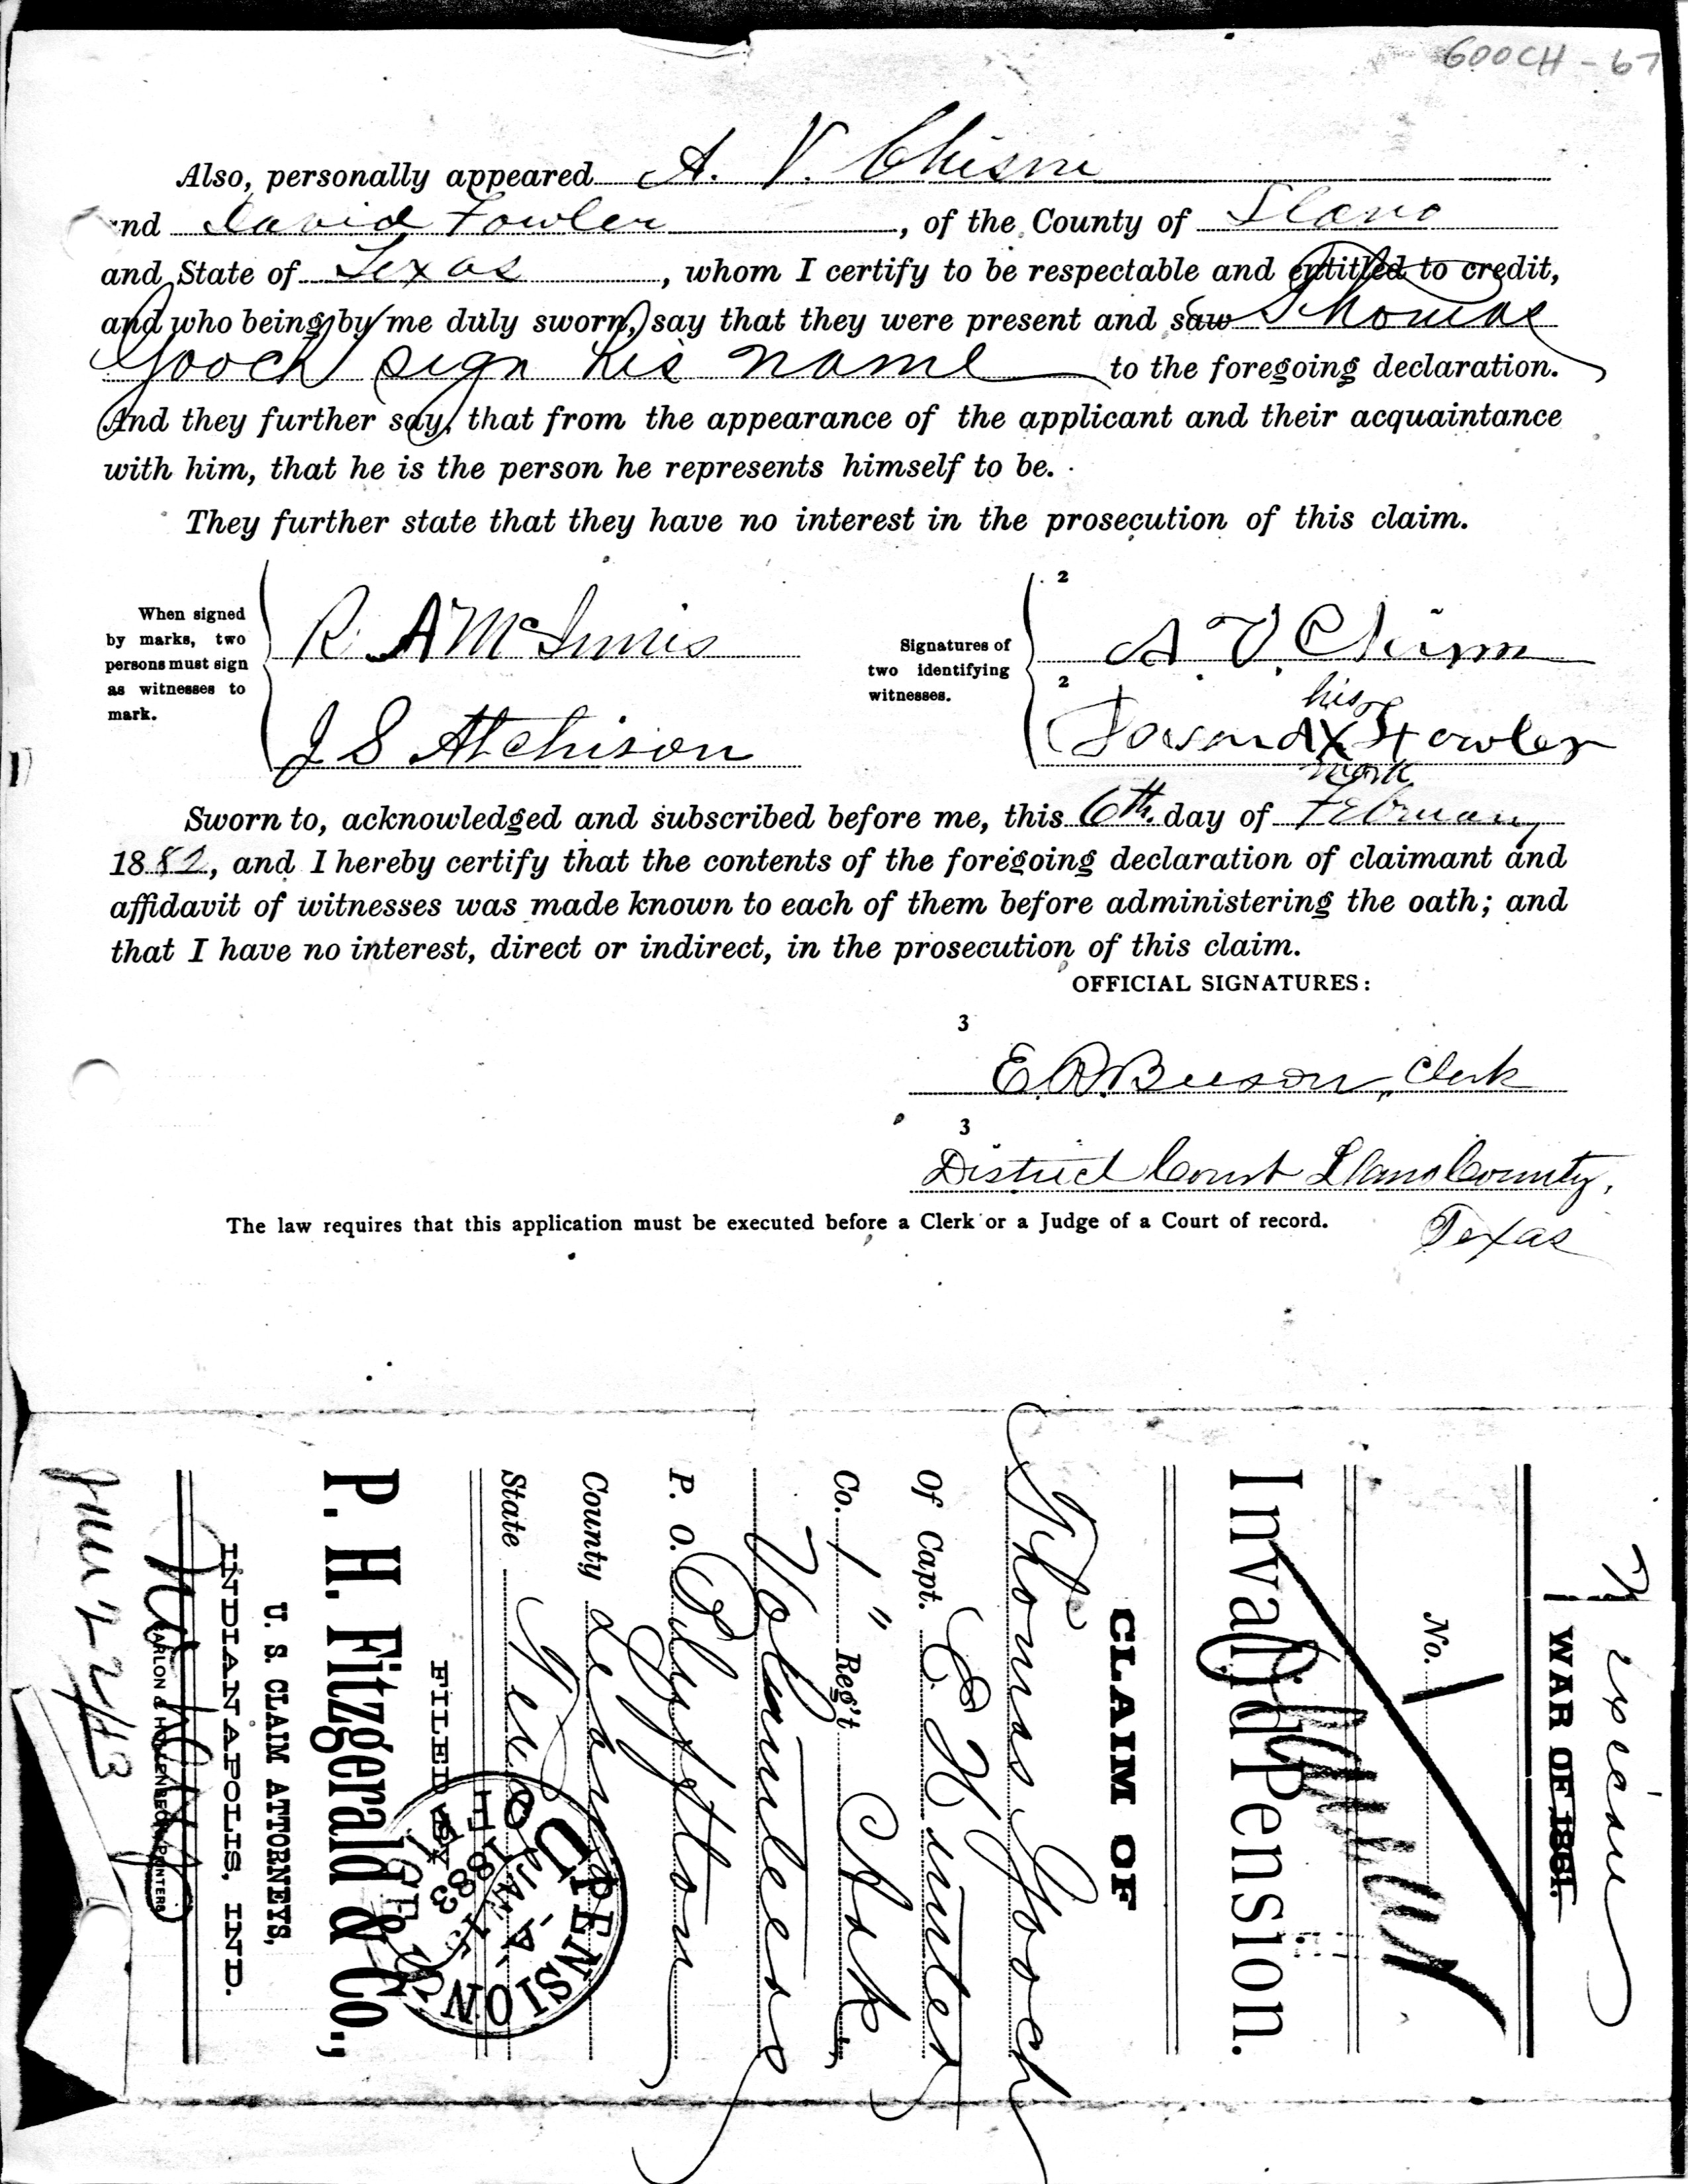 GOOCH - 67
Also, personally appeared A. V. Chism
and David Fowler, of the County of Llano
and State of Texas, whom I certify to be respectable and entitled to credit,
and who being by me duly sworn, say that they were present and saw Thomas
Gooch sign his name to the foregoing declaration.
And they further say, that from the appearance of the applicant and their acquaintance
with him, that he is the person he represents himself to be.
They further state that they have no interest in the prosecution of this claim.
When signed
by marks, two
persons must sign
as witnesses to
mark.
R. A McInnis
J S Atchison
Signatures of
two identifying
witnesses.
2
A. V. Chism
2
his
X Fowler
mark
Sworn to, acknowledged and subscribed before me, this 6th day of February
1882, and I hereby certify that the contents of the foregoing declaration of claimant and
affidavit of witnesses was made known to each of them before administering the oath; and
that I have no interest, direct or indirect, in the prosecution of this claim.
OFFICIAL SIGNATURES:
3
E. R. Beeson, Clerk
3
District Court Llano County,
Texas
The law requires that this application must be executed before a Clerk or a Judge of a Court of record.
Mexican
WAR OF 1861.
No.
Invalid Pension.
CLAIM OF
Thomas Gooch
Of Capt. E Hunter
Co. 1" Reg't Ark.
Volunteers
P. O. Bluffton
County Llano
State Texas
FILED BY
U.S. PENSION OFFICE
JAN 15 1883
P. H. Fitzgerald & Co.,
U. S. CLAIM ATTORNEYS,
INDIANAPOLIS, IND.
CARLON & HOLLENBECK, PRINTERS